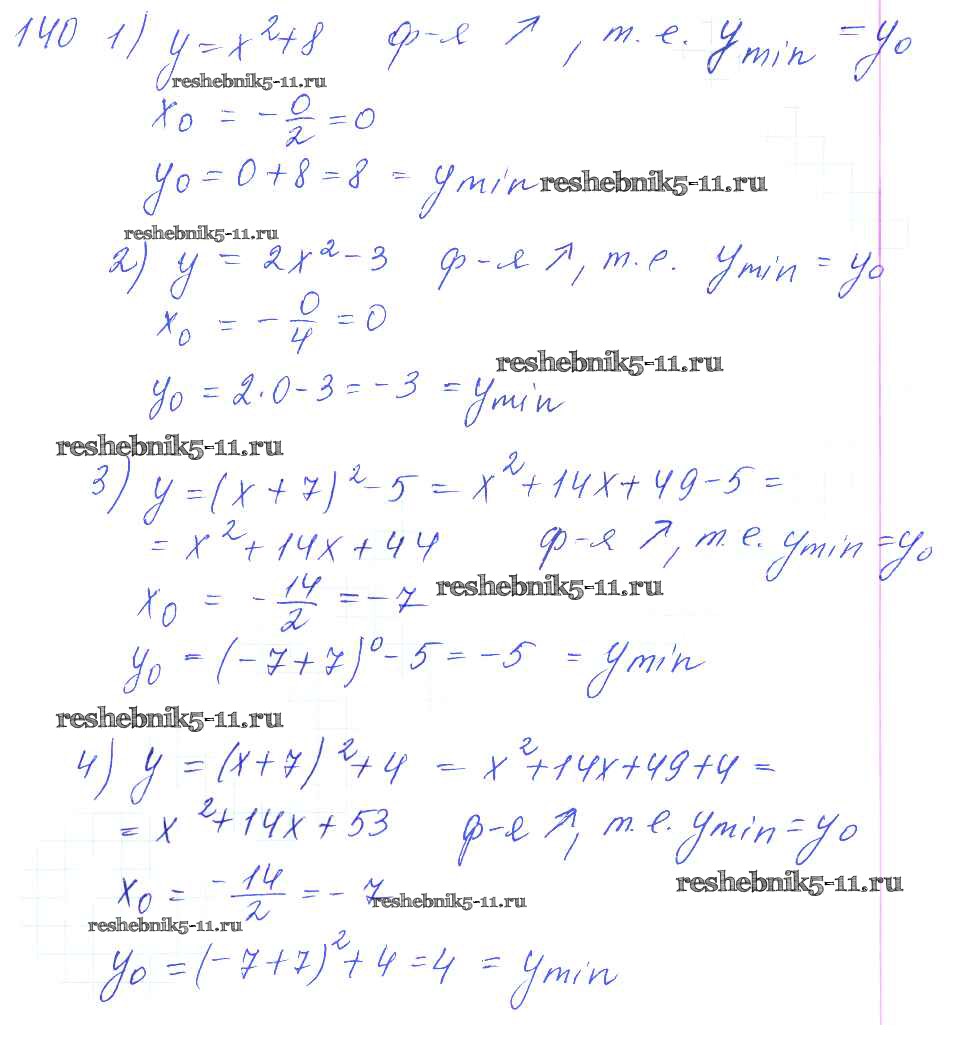 140 1) y = x² + 8 ф-я ↗, т.е. y min = y₀
reshebnik5-11.ru
x₀ = -0/2 = 0
y₀ = 0 + 8 = 8 = y min reshebnik5-11.ru
reshebnik5-11.ru
2) y = 2x² - 3 ф-я ↗, т.е. y min = y₀
x₀ = -0/4 = 0
reshebnik5-11.ru
y₀ = 2·0 - 3 = -3 = y min
reshebnik5-11.ru
3) y = (x + 7)² - 5 = x² + 14x + 49 - 5 =
= x² + 14x + 44 ф-я ↗, т.е. y min = y₀
x₀ = -14/2 = -7 reshebnik5-11.ru
y₀ = (-7 + 7)⁰ - 5 = -5 = y min
reshebnik5-11.ru
4) y = (x + 7)² + 4 = x² + 14x + 49 + 4 =
= x² + 14x + 53 ф-я ↗, т.е. y min = y₀
reshebnik5-11.ru
x₀ = -14/2 = -7 reshebnik5-11.ru
reshebnik5-11.ru
y₀ = (-7 + 7)² + 4 = 4 = y min